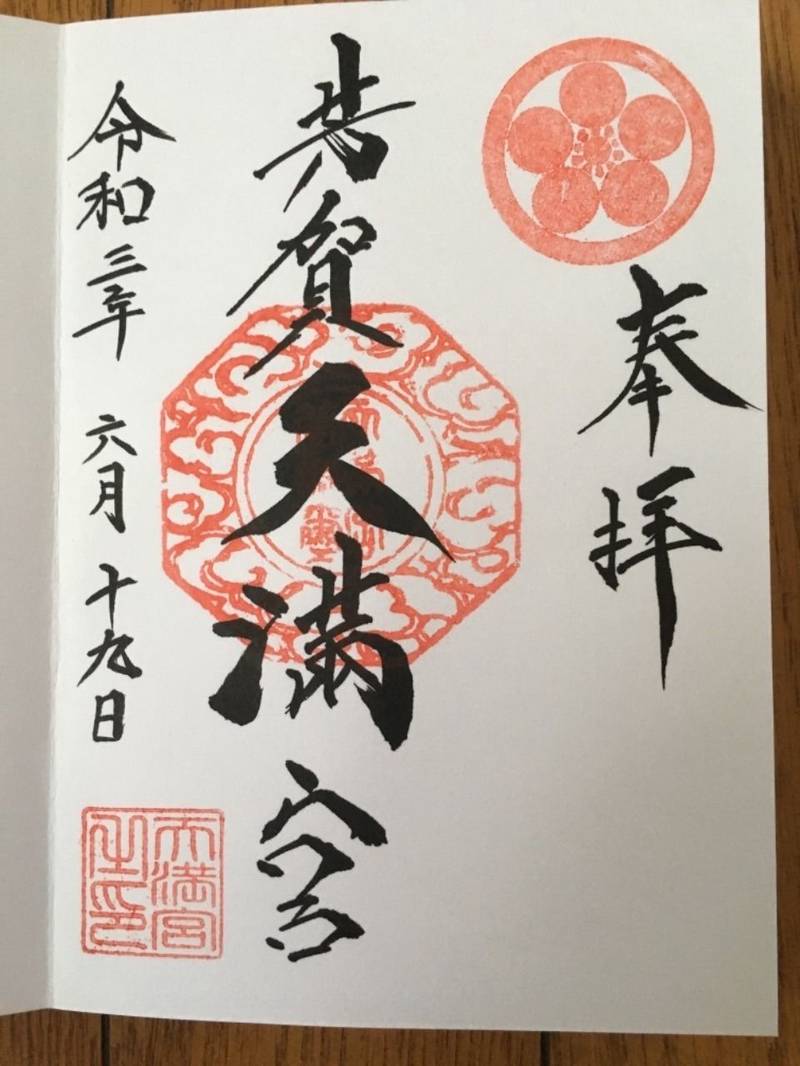 奉拝
共賀天満宮
令和三年 六月 十九日
天満宮
之印